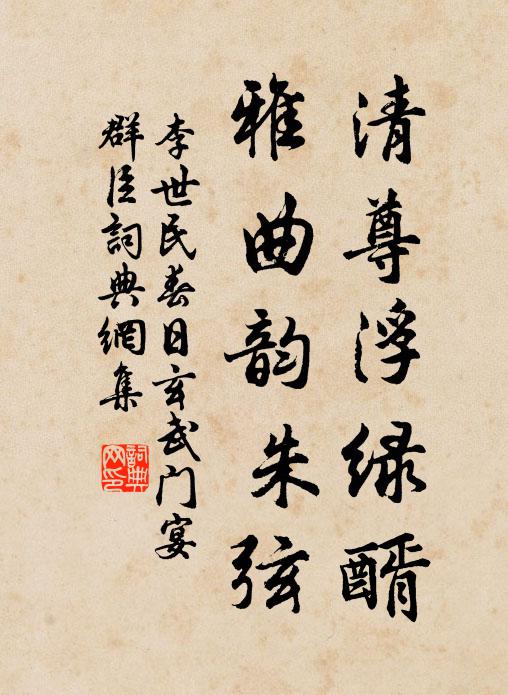 清尊浮绿醑
雅曲韵朱弦
李世民春日玄武门宴
群臣詞典網集
詞典网印